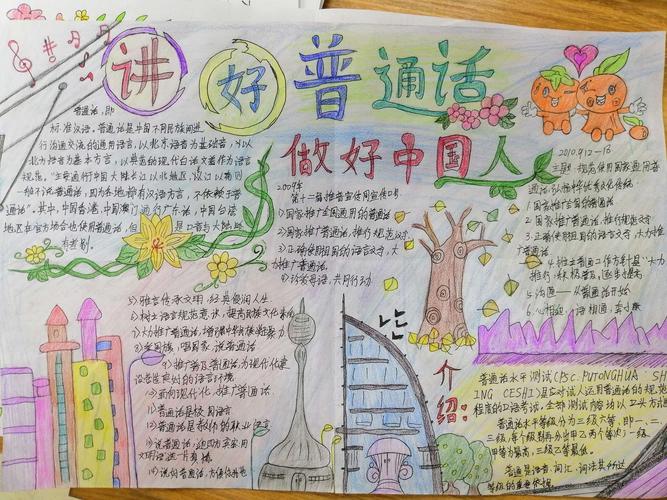 讲好普通话
做好中国人
普通话,即
标准汉语。普通话是中国不同民族间进
行沟通交流的通用语言,以北京语音为基础音,以
北方语音为基本方言,以典范的现代白话文著作为语言
规范,
一般不说普通话,因为各地都有汉语方言,不依赖于普
通话"。其中,中国香港,中国澳门通行广东话,中国台湾
地区在官方场合也使用普通话,但
有差别。
2009年
第十二届推普宣传周宣传口号
①国家推广全国通用的普通话
②国家推广普通话,推行规范汉字
③正确使用祖国的语言文字,大
力推广普通话
④爱国母语,共同行动
5)雅言传承文明,经典浸润人生
6)树立语言规范意识,提高民族文化素质
7)大力推广普通话,增强中华民族凝聚力
8)爱国旗,唱国歌,说普通话
9)推广普及普通话,为现代化建
设营造良好的语言环境
面向现代化,推广普通话
普通话是校园语言
普通话是教师的职业语言
说普通话,迎四方宾客,用
文明语,送一片真情
说好普通话,方便你我他
2010.9.12-18
1.国家推广全国的普通话
2.国家推广普通话,推行规范汉字
3.正确使用祖国的语言文字,大力推
广普通话
4.推広普通话工作方针是"大力
推行,积极普及,逐步提高
5.沟通——从普通话开始
6.心相近,语相通,
介绍:
普通话水平测试(PSC:PUTONGHUA SH
ING CESHI)是应对试人运用普通话的规范
程度的口语考试,全部测试内容均以口头方式
普通话水平等级分为三级六等,即一、二、
三级,每个级别再分出甲乙两个等次;一级
甲等为最高,三级乙等最低。
普通话语音、词汇、语法